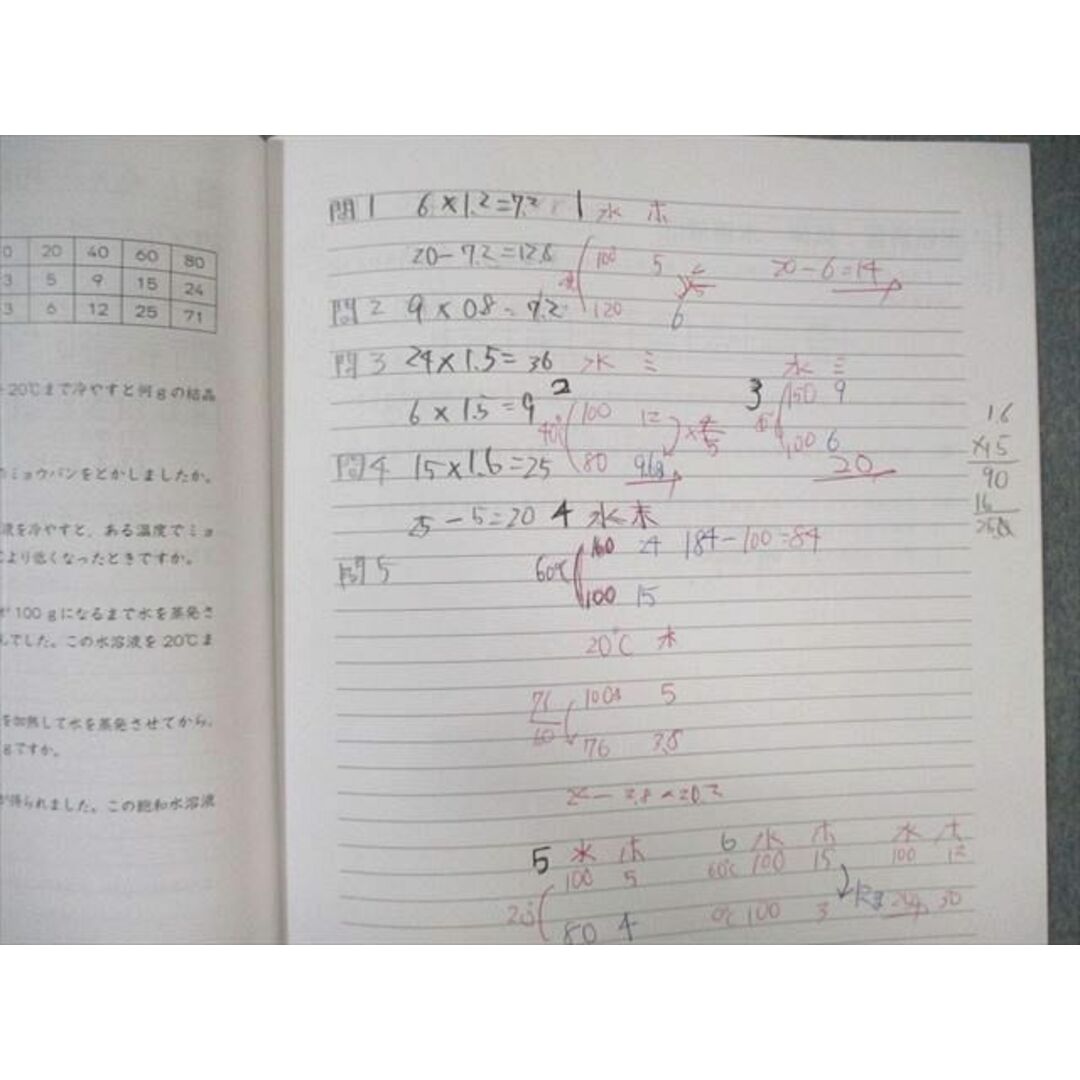 0 20 40 60 80
3 5 9 15 24
3 6 12 25 71
20℃まで冷やすと何gの結晶
ミョウバンをとかしましたか。
液を冷やすと、ある温度でミョ
より低くなったときですか。
が100gになるまで水を蒸発さ
でした。この水溶液を20℃ま
を加熱して水を蒸発させてから、
gですか。
が得られました。この飽和水溶液
問1 6×1.2=7.2 1 水 ホ
20-7.2=12.8 100 5 20-6=14
問2 9×0.8=7.2 120 6
問3 24×1.5=36 水 ミ 水 ミ
6×1.5=9 2 100 12 3 150 9
40° 100 6
問4 15×1.6=25 80 9.6g 20
25-5=20 4 水 ホ
160 24 184-100=84
問5 60℃ 100 15
20℃ ホ
100g 5
76 3.8
5 水 ホ 6 水 ホ 水 ホ
100 5 60℃ 100 15 100 12
20° 80 4 0℃ 100 3 30
1.6
×15
90
16